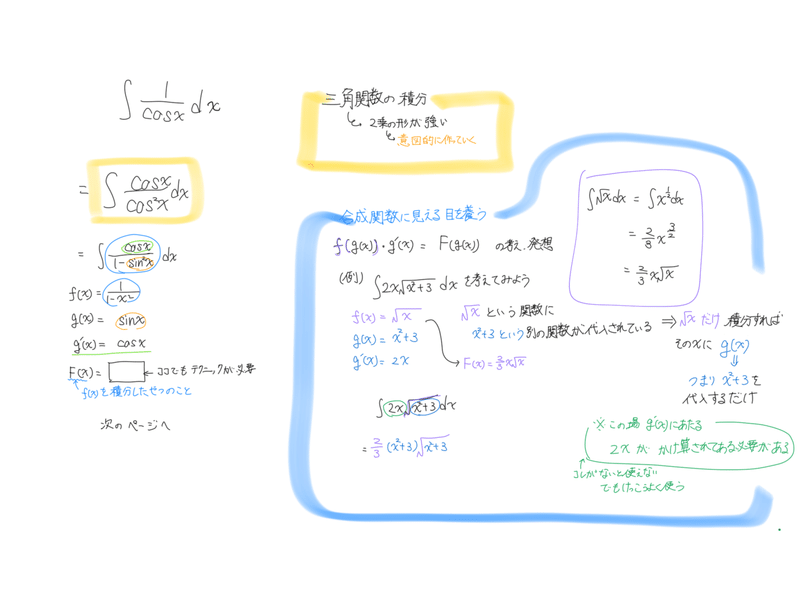 ∫ 1/cosx dx
= ∫ cosx/cos²x dx
= ∫ cosx/(1-sin²x) dx
f(x) = 1/(1-x²)
g(x) = sinx
g'(x) = cosx
F(x) = ← ココでもテクニックが必要
f(x)を積分したヤツのこと
次のページへ
三角関数の積分
2乗の形が強い
意図的に作っていく
合成関数に見える目を養う
f(g(x))・g'(x) = F(g(x)) の考え、発想
(例) ∫2x√(x²+3) dx を考えてみよう
f(x) = √x
g(x) = x²+3
g'(x) = 2x
√x という関数に
x²+3 という別の関数が代入されている
F(x) = 2/3 x√x
⇒ √x だけ積分すれば
そのxに g(x)
⇓
つまり x²+3 を
代入するだけ
∫2x√(x²+3) dx
= 2/3 (x²+3)√(x²+3)
∫√x dx = ∫x^(1/2) dx
= 2/3 x^(3/2)
= 2/3 x√x
※ この場 g'(x)にあたる
2x が かけ算されてある必要がある
↑コレがないと使えない
でもけっこうよく使う